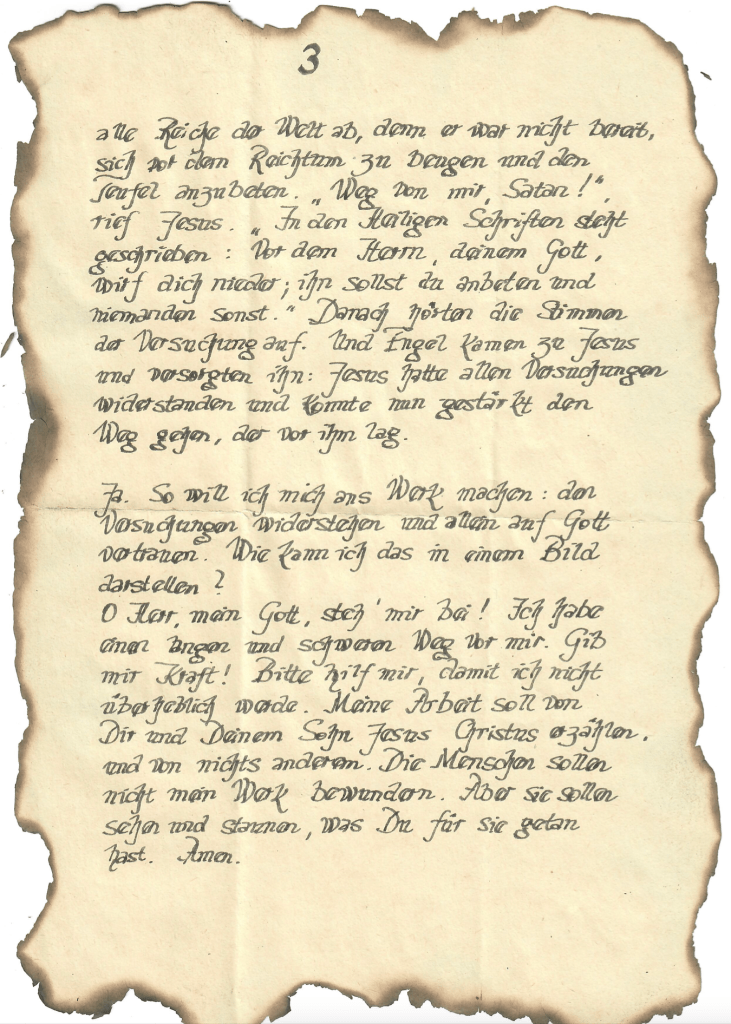 3
alle Reiche der Welt ab, denn er war nicht bereit,
sich vor dem Reichtum zu beugen und den
Teufel anzubeten. „Weg von mir, Satan!“,
rief Jesus. „In den Heiligen Schriften steht
geschrieben: Vor dem Herrn, deinem Gott,
wirf dich nieder; ihn sollst du anbeten und
niemanden sonst.“ Danach hörten die Stimmen
der Versuchung auf. Und Engel kamen zu Jesus
und versorgten ihn: Jesus hatte allen Versuchungen
widerstanden und konnte nun gestärkt den
Weg gehen, der vor ihm lag.
Ja. So will ich mich ans Werk machen: den
Versuchungen widerstehen und allein auf Gott
vertrauen. Wie kann ich das in einem Bild
darstellen?
O Herr, mein Gott, steh' mir bei! Ich habe
einen langen und schweren Weg vor mir. Gib
mir Kraft! Bitte hilf mir, damit ich nicht
überheblich werde. Meine Arbeit soll von
Dir und Deinem Sohn Jesus Christus erzählen.
und von nichts anderem. Die Menschen sollen
nicht mein Werk bewundern. Aber sie sollen
sehen und staunen, was Du für sie getan
hast. Amen.